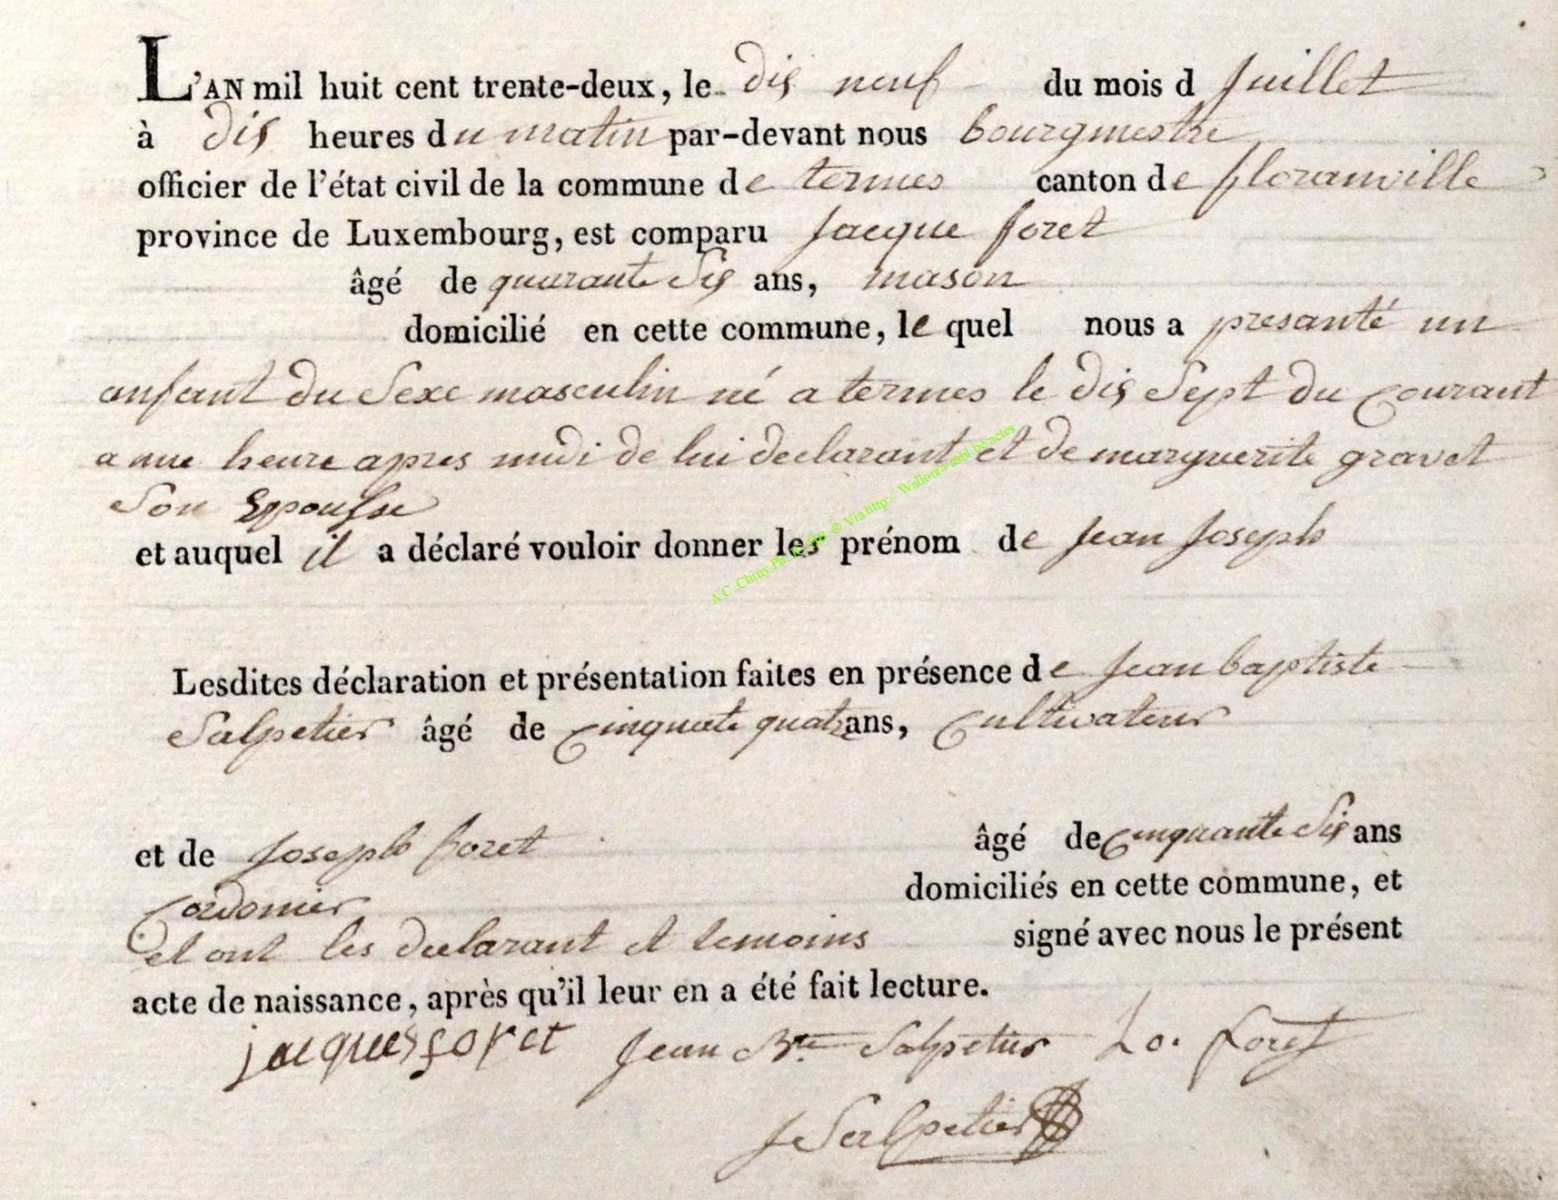 L'AN mil huit cent trente-deux, le dis neuf du mois d Juillet
à dis heures du matin par-devant nous bourgmestre
officier de l'état civil de la commune de termes canton de floranville
province de Luxembourg, est comparu Jacque foret
âgé de quarante Six ans, mason
domicilié en cette commune, le quel nous a presanté un
anfant du Sexe masculin né a termes le dis Sept du Courant
a une heure apres midi de lui declarant et de marguerite gravet
Son Epousse
et auquel il a déclaré vouloir donner les prénom de Jean Joseph
Lesdites déclaration et présentation faites en présence de Jean baptiste
Salpetier âgé de Cinquate quatr ans, Cultivateur
et de Joseph foret âgé de Cinquante Six ans
Cordonier domiciliés en cette commune, et
et ont les declarant et temoins signé avec nous le présent
acte de naissance, après qu'il leur en a été fait lecture.
jacques foret Jean Bte Salpetier Jo. foret
J Salpetier